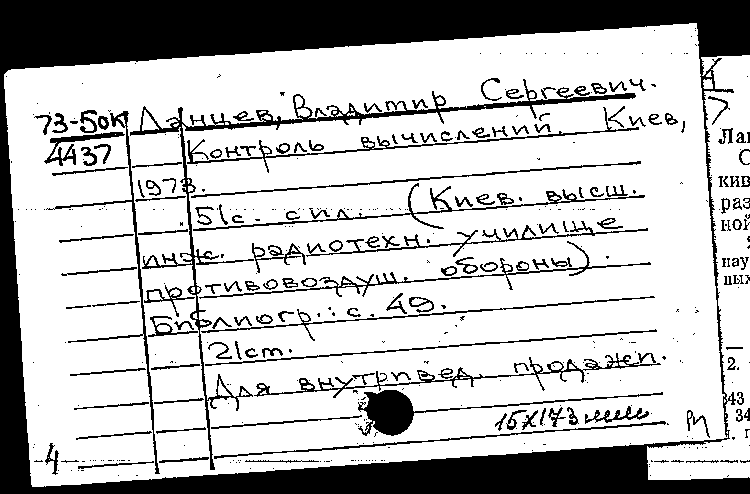 73-5ок Ланцев, Владимир Сергеевич.
4437 Контроль вычислений. Киев,
1973.
51с. с ил. (Киев. высш.
инж. радиотехн. училище
противовоздуш. обороны).
Библиогр.: с. 49.
21см.
Для внутривед. продажи.
15X173
4
Лан
С
кив
раз
ной
нау
ных
2.
343
34